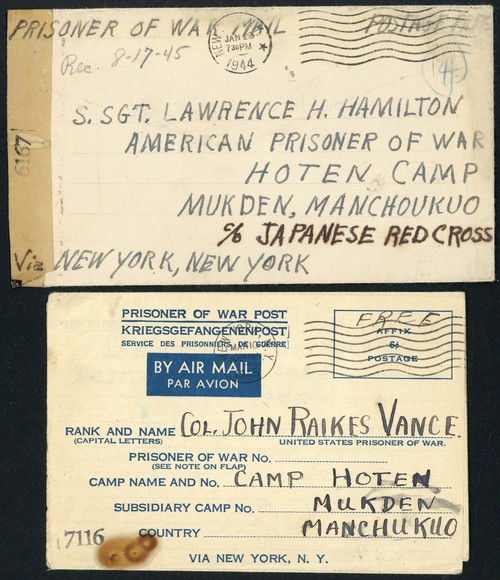 PRISONER OF WAR MAIL POSTAGE FREE
NEW
JAN 25
730PM
1944
Rec. 8-17-45
6167
S. SGT. LAWRENCE H. HAMILTON
AMERICAN PRISONER OF WAR
HOTEN CAMP
MUKDEN, MANCHOUKUO
c/o JAPANESE RED CROSS
Via NEW YORK, NEW YORK
PRISONER OF WAR POST
KRIEGSGEFANGENENPOST
SERVICE DES PRISONNIERS DE GUERRE
FREE
AFFIX
6¢
POSTAGE
BY AIR MAIL
PAR AVION
RANK AND NAME COL. JOHN RAIKES VANCE
(CAPITAL LETTERS) UNITED STATES PRISONER OF WAR.
PRISONER OF WAR No.
(SEE NOTE ON FLAP)
CAMP NAME AND No. CAMP HOTEN
SUBSIDIARY CAMP No. MUKDEN
COUNTRY MANCHUKUO
7116
VIA NEW YORK, N. Y.